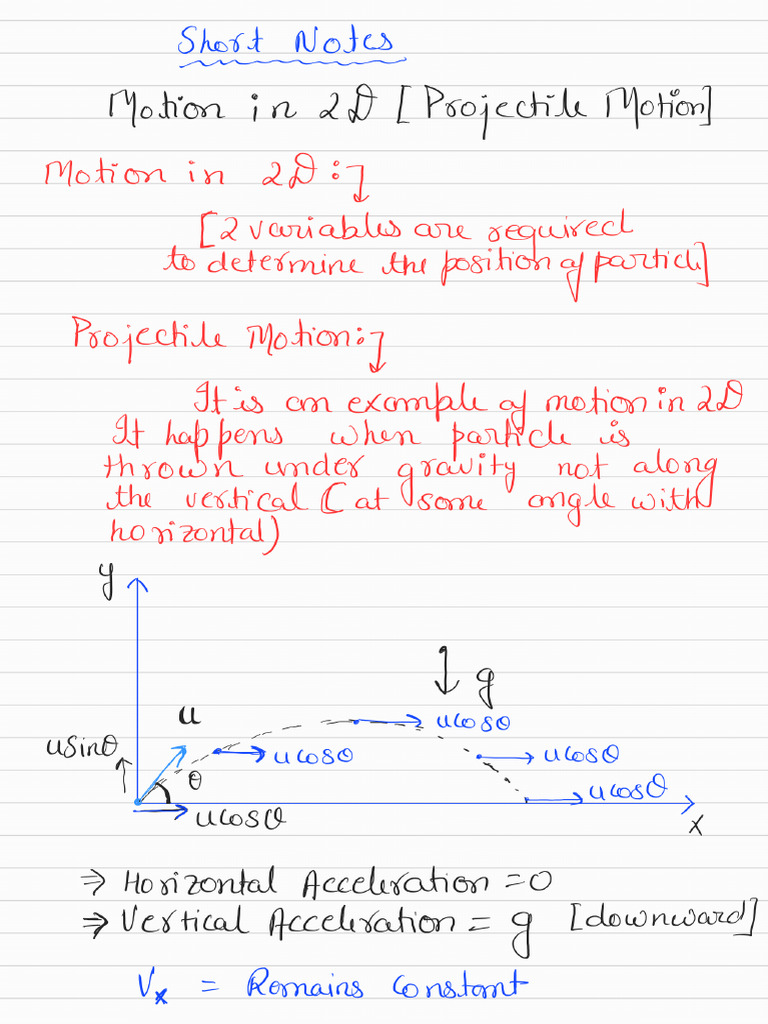 Short Notes
Motion in 2D [Projectile Motion]
Motion in 2D :↴
[2 variables are required
to determine the position of particle]
Projectile Motion:↴
It is an example of motion in 2D
It happens when particle is
thrown under gravity not along
the vertical (at some angle with
horizontal)
y
g
u
ucosθ
usinθ
ucosθ
ucosθ
θ
ucosθ
ucosθ
x
⇒ Horizontal Acceleration = 0
⇒ Vertical Acceleration = g [downward]
Vx = Remains Constant